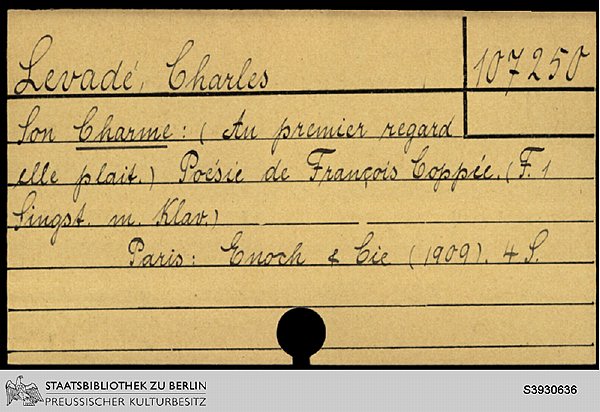 Levadé, Charles
107250
Son Charme: (Au premier regard
elle plait.) Poésie de François Coppée. (F. 1
Singst. m. Klav.)
Paris: Enoch & Cie (1909). 4 S.
STAATSBIBLIOTHEK ZU BERLIN
PREUSSISCHER KULTURBESITZ
S3930636